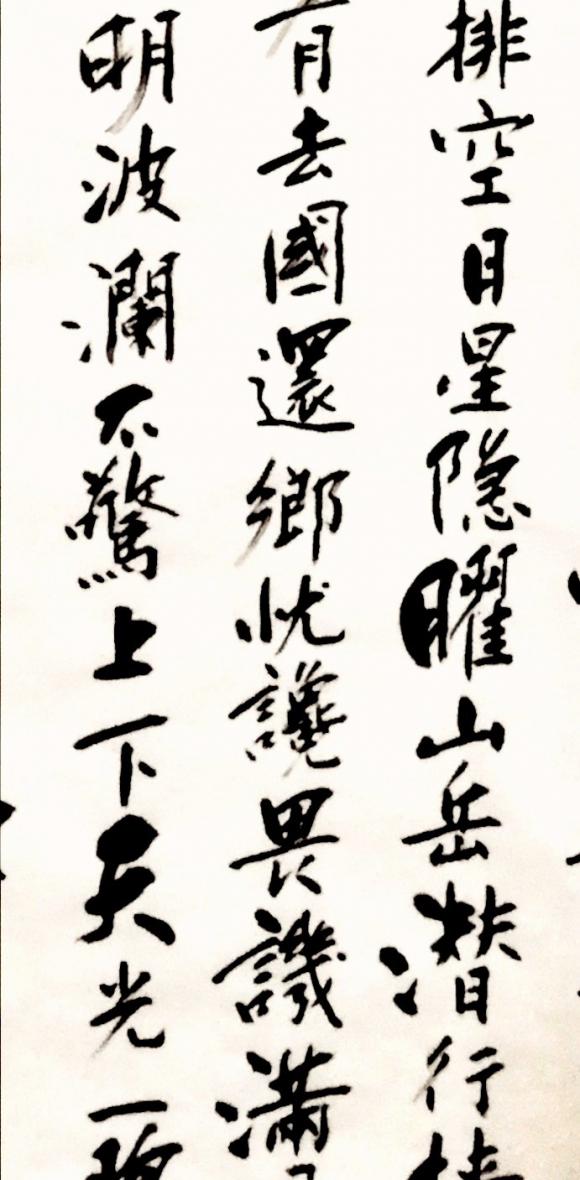 排空日星隐曜山岳潜行
有去國還鄉忧讒畏譏滿
明波瀾不驚上下天光一碧